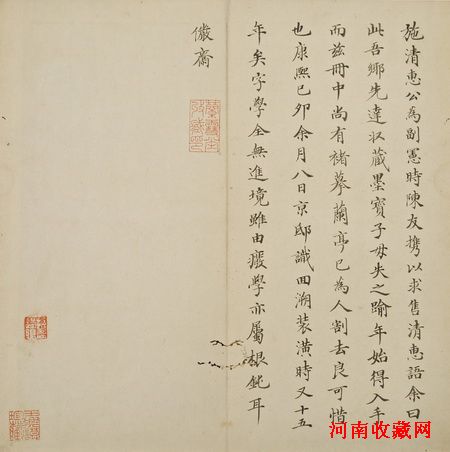 施清惠公為副憲時陳友携以求售清惠語余曰
此吾鄉先達収藏墨寶子毋失之踰年始得入手
而玆冊中尚有褚摹蘭亭已為人割去良可惜
也康熙己卯余月八日京邸識回溯装潢時又十五
年矣字學全無進境雖由癈學亦属根鈍耳
儼齋
河南收藏网